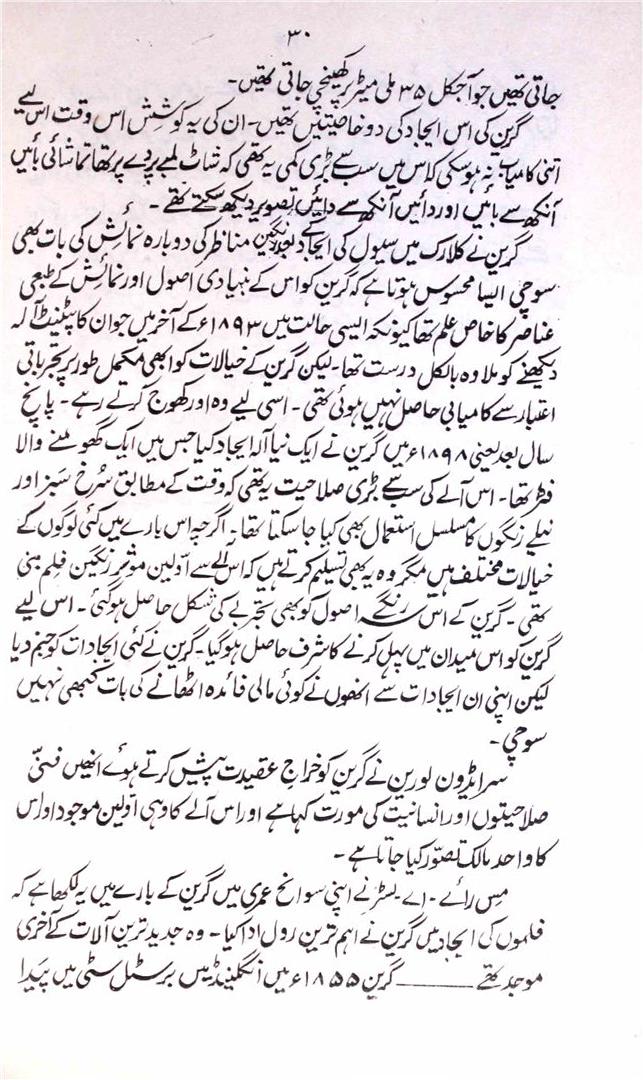 ۳۰
جاتی تھیں جو آجکل ۳۵ ملی میٹر پر کھینچی جاتی تھیں۔
گرین کی اس ایجاد کی دو خاصیتیں تھیں۔ ان کی یہ کوشش اس وقت اس لیے
اتنی کامیاب نہ ہو سکی کہ اس میں سب سے بڑی کمی یہ تھی کہ شاٹ لمبے پردے پر تھا تماشائی بائیں
آنکھ سے بائیں اور دائیں آنکھ سے دائیں تصویر دیکھ سکتے تھے۔
گرین نے کلارک میں سیول کی ایجاد سے اور رنگین مناظر کی دوبارہ نمائش کی بات بھی
سوچی ایسا محسوس ہوتا ہے کہ گرین کو اس کے بنیادی اصول اور نمائش کے طبعی
عناصر کا خاص علم تھا کیونکہ ایسی حالت میں ۱۸۹۳ء کے آخر میں جو ان کا پیٹنٹ آلہ
دیکھنے کو ملا وہ بالکل درست تھا۔ لیکن گرین کے خیالات کو ابھی مکمل طور پر تجرباتی
اعتبار سے کامیابی حاصل نہیں ہوئی تھی۔ اسی لیے وہ اور کھوج کرتے رہے۔ پانچ
سال بعد یعنی ۱۸۹۸ء میں گرین نے ایک نیا آلہ ایجاد کیا جس میں ایک گھومنے والا
فلٹر تھا۔ اس آلے کی سب سے بڑی صلاحیت یہ تھی کہ وقت کے مطابق سُرخ سَبز اور
نیلے رنگوں کا مسلسل استعمال بھی کیا جا سکتا تھا۔ اگرچہ اس بارے میں کئی لوگوں کے
خیالات مختلف ہیں مگر وہ یہ بھی تسلیم کرتے ہیں کہ اس آلے سے اوّلین موثر رنگین فلم بنی
تھی۔ گرین کے اس سہ رنگے اصول کو بھی تجربے کی شکل حاصل ہو گئی۔ اس لیے
گرین کو اس میدان میں پہل کرنے کا شرف حاصل ہو گیا۔ گرین نے کئی ایجادات کو جنم دیا
لیکن اپنی ان ایجادات سے انھوں نے کوئی مالی فائدہ اٹھانے کی بات کبھی نہیں
سوچی۔
سر ایڈون لورین نے گرین کو خراجِ عقیدت پیش کرتے ہوئے انھیں فنّی
صلاحیتوں اور انسانیت کی مورت کہا ہے اور اس آلے کا وہی اوّلین موجد اور اس
کا واحد مالک تصوّر کیا جاتا ہے۔
مِس رائے۔ اے بسٹر نے اپنی سوانح عمری میں گرین کے بارے میں یہ لکھا ہے کہ
فلموں کی ایجاد میں گرین نے اہم ترین رول ادا کیا۔ وہ جدید ترین آلات کے آخری
موجد تھے ــــــــ گرین ۱۸۵۵ء میں انگلینڈ میں برسٹل سٹی میں پَیدا